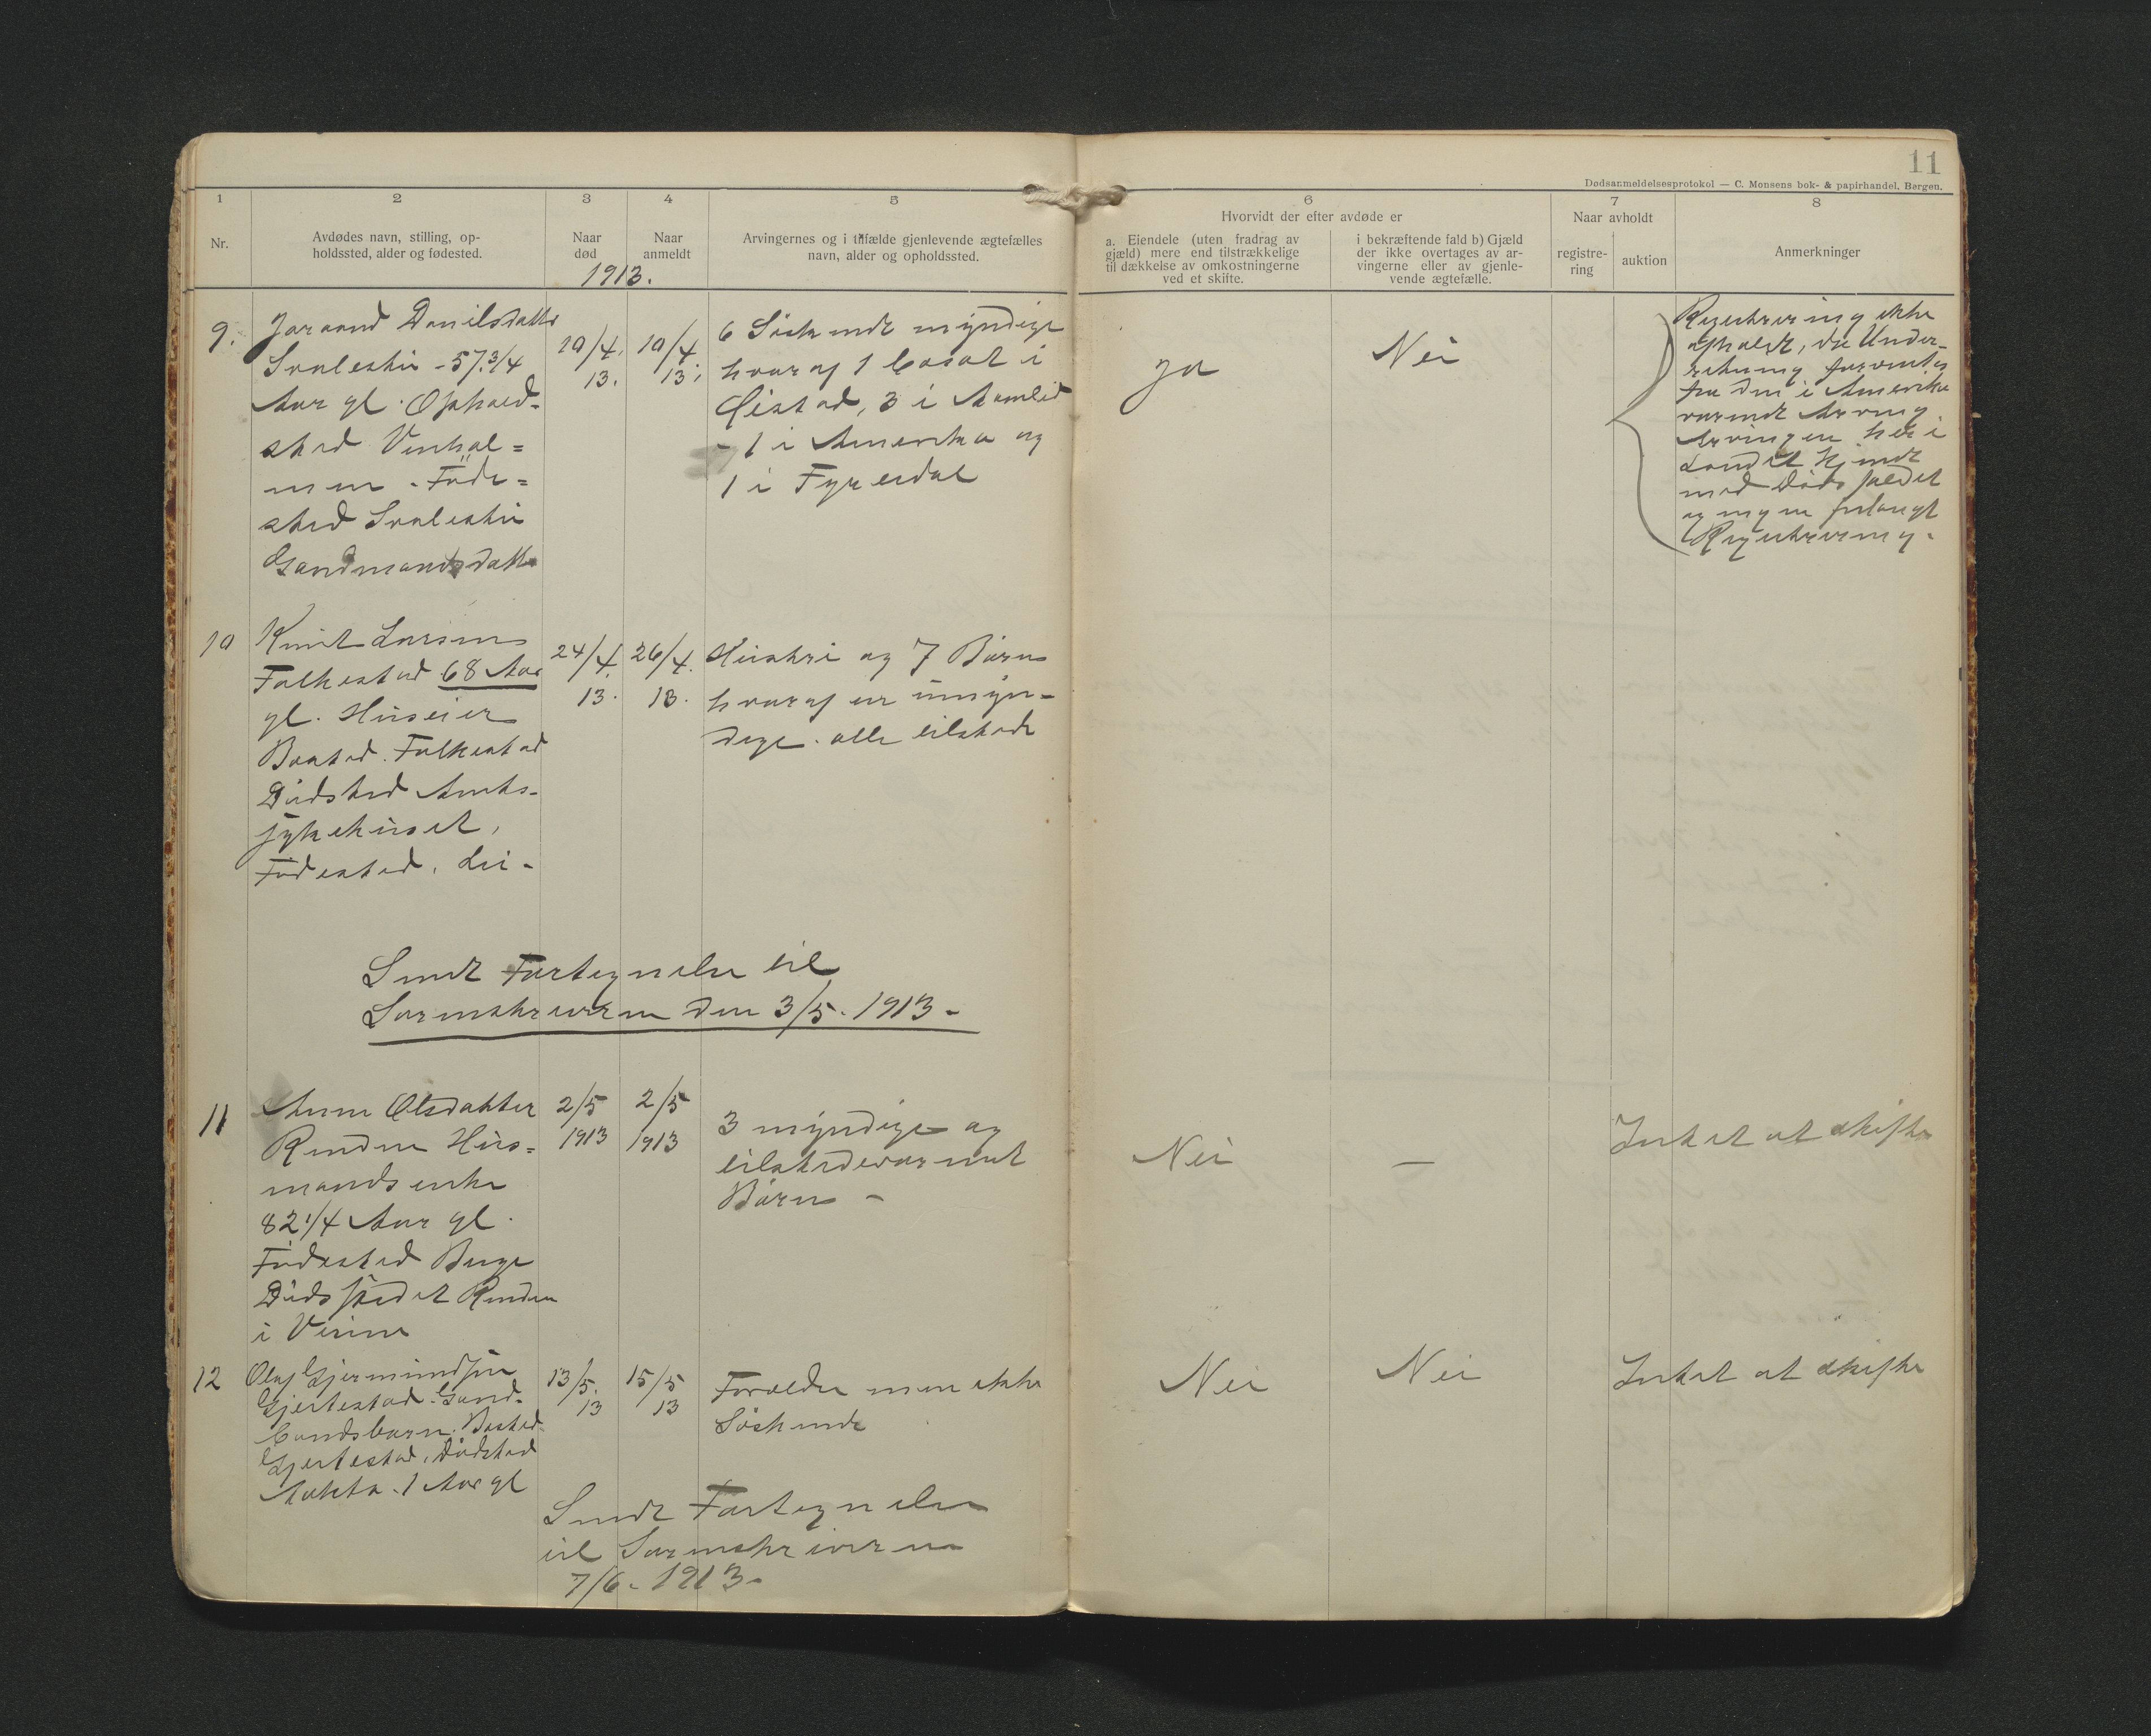 11
Dødsanmeldelsesprotokol — C. Monsens bok- & papirhandel, Bergen.
1 2 3 4 5 6 7 8
Nr.
Avdødes navn, stilling, op-
holdssted, alder og fødested.
Naar
død
Naar
anmeldt
1913.
Arvingernes og i tilfælde gjenlevende ægtefælles
navn, alder og opholdssted.
Hvorvidt der efter avdøde er
a. Eiendele (uten fradrag av
gjæld) mere end tilstrækkelige
til dækkelse av omkostningerne
ved et skifte.
i bekræftende fald b) Gjæld
der ikke overtages av ar-
vingerne eller av gjenle-
vende ægtefælle.
Naar avholdt
registre-
ring
auktion
Anmerkninger
9.
Joraand Danilsdatter
57 3/4
Aar gl. Ophold-
sted Vinhol=
men. Føde=
sted
Gaardmandsdatter
19/4.
13.
19/4
13.
6 Søskende myndige
hvoraf 1 bosat i
3 i Aamlid
- 1 i Amerika og
1 i Fyresdal
ja
Nei
Registrering ikke
opholdt, da Under-
retning forventes
fra den i Amerika
værende Arving.
Arvingene her i
Landet kjendt
med Dødsfaldet
og ingen forlangt
Registrering.
10
Knut Larsen
Folkestad 68 Aar
gl. Huseier
Bosted. Folkestad
Dødsted Amts-
sykehuset,
Fødested. Lei-
24/4.
13.
26/4.
13.
Hustru og 7 Børn
hvoraf en umyn-
dige. alle tilstede
Sendt Fortegnelse til
Sorenskriveren den 3/5. 1913-
11
Anne Olsdatter
Renden Hus=
mandsenke
82 1/4 Aar gl.
Fødested Berge
Dødsfaldet Renden
i Veum
2/5
1913
2/5
1913
3 myndige og
tilstedeværende
Børn -
Nei
—
Intet at skifte
12
Olaf Gjermundsøn
Gjertestad. Gaard-
bandsbarn. Bosted
Gjertestad. Dødsted
1 Aar gl
13/5.
13
15/5
13
Forældre men ikke
Søskende
Nei
Nei
Intet at skifte
Sendt Fortegnelse
til Sorenskriveren
7/6. 1913-